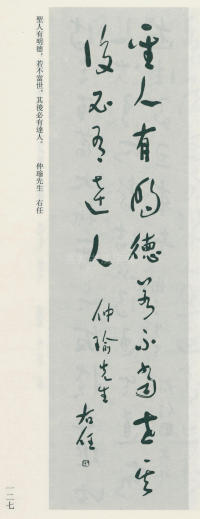 聖人有明德若不當世其
後必有達人
仲瑜先生
右任
聖人有明德，若不當世，其後必有達人。 仲瑜先生 右任
一二七